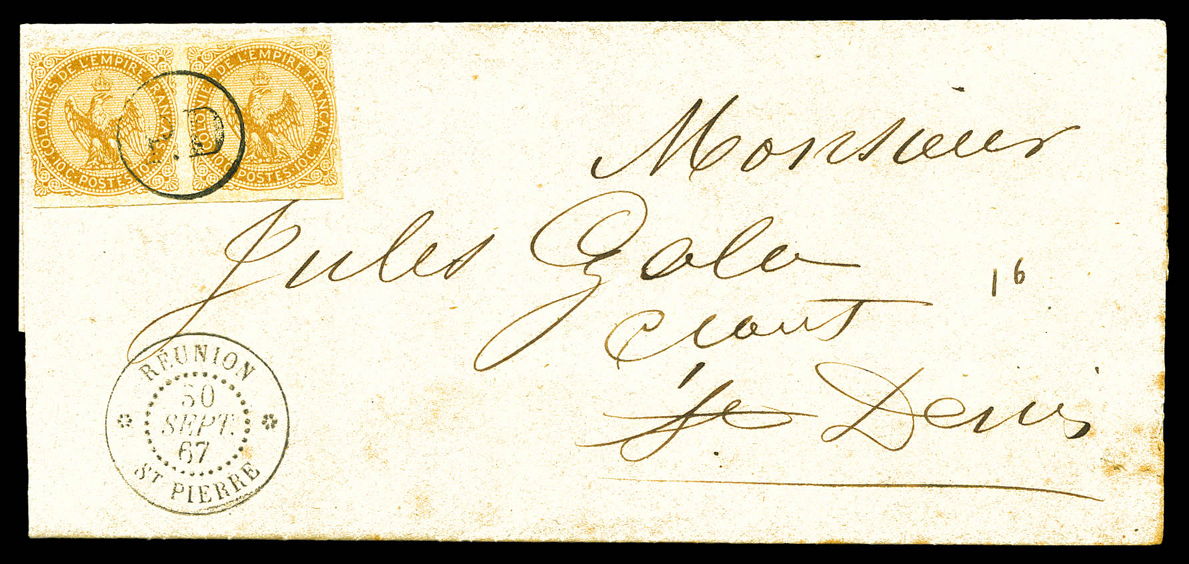 COLONIES DE L'EMPIRE FRANÇAIS
10 C. POSTES 10 C.
COLONIES DE L'EMPIRE FRANÇAIS
10 C. POSTES 10 C.
P.D
Monsieur
Jules Gola
St Denis
16
RÉUNION
30
SEPT.
67
ST PIERRE